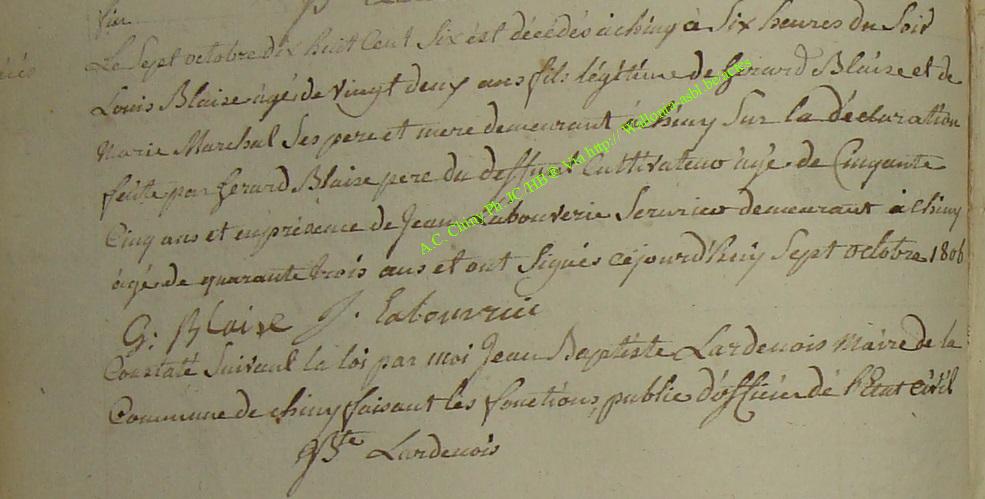 Le Sept octobre dix huit Cent Six est décédés à chiny à Six heures du Soir
Louis Blaise âgé de vingt deux ans fils légitime de Gerard Blaise et de
Marie Marchal Ses pere et mere demeurant à chiny Sur la déclaration
feite par Gerard Blaise pere du deffunt Cultivateur âgé de Cinquante
Cinq ans et en présence de Jean Labouverie Serurier demeurant à Chiny
âgé de quarante trois ans et ont Signés cejourd'huy Sept octobre 1806
G: Blaise J. Labouverie
Constaté Suivant la loi par moi Jean Baptiste Lardenois Maire de la
Commune de chiny faisant les fonctions public d'officier de l'Etat Civil
JBte Lardenois
A.C. Chiny Ph JC /HB @ Via http:// Wallonia-asbl.be/actes